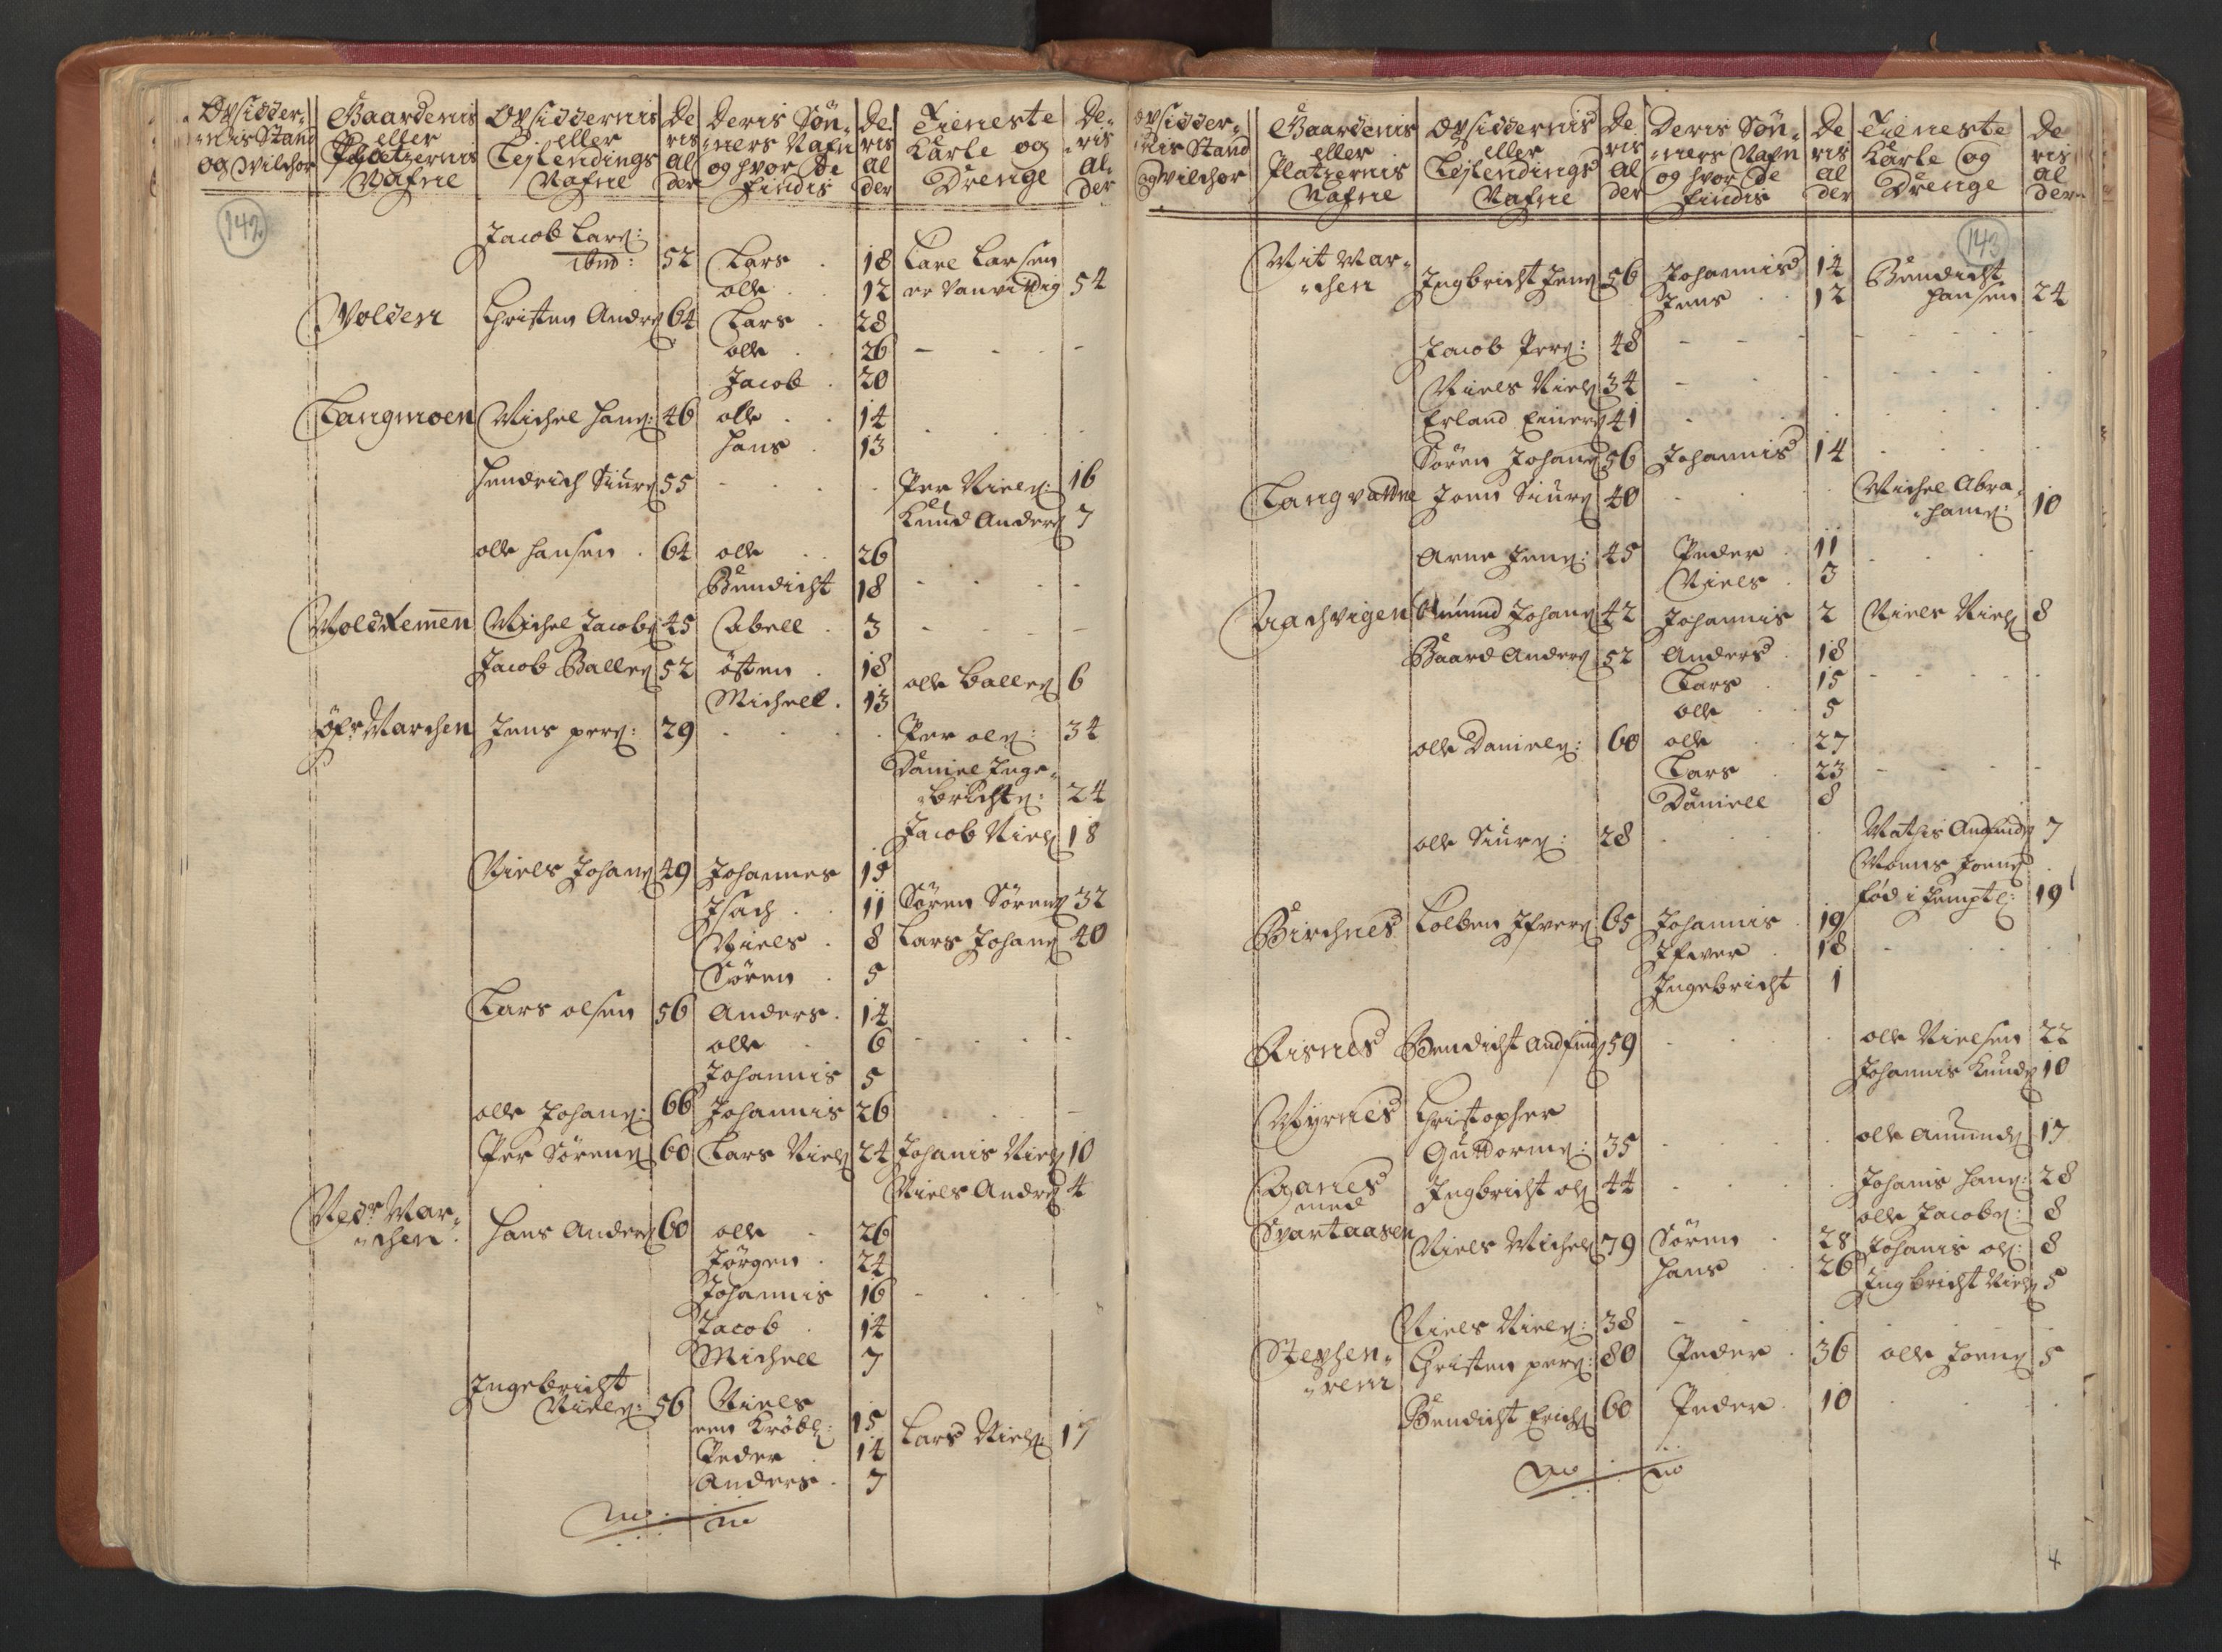 Opsidder-
nis Stand
og Vilchor
Gaardenis
eller
Platzernis
Nafne
Opsiddernis
eller
Lejlendings
Nafne
De
ris
Al
der
Deris Søn-
ners Nafn
og hvor De
findis
De
ris
Al
der
Tieneste
Karle og
Drenge
De-
ris
Al-
der
142
Jacob Lars:
ibm: 52 Lars 18 Carl Larsen
Olle 12 er Vanvittig 54
Volden Christen Anders 64 Lars 28
Olle 26
Jacob 20
Langmoen Michel Hans: 46 Olle 14
Hans 13
Hendrich Siurs 55 Per Niels: 16
Knud Anders 7
Olle Hansen 64 Olle 26
Bendicht 18
Michel Jacobs 45 Abell 3
Jacob Balles 52 Østen 18
Olle Balles 6
Michell 13
Øfr Marchen Jens Pers: 29 Per Ols: 34
Daniel Inge-
brichts: 24
Jacob Niels 18
Niels Johans 49 Johannes 15
Isach 11 Søren Sørens 32
Niels 8 Lars Johans 40
Søren 5
Lars Olsen 56 Anders 14
Olle 6
Johannis 5
Olle Johans: 66 Johannis 26
Per Sørens 60 Lars Niels 24 Johanis Niels 10
Niels Anders 4
Nedr Mar-
chen Hans Anders 60 Olle 26
Jørgen 24
Johannis 16
Jacob 14
Michell 7
Ingebricht
Niels: 56 Niels
een Krøbl: 15 Lars Niels: 17
Peder 14
Anders 7
Opsidder-
nis Stand
og Vilchor
Gaardenis
eller
Platzernis
Nafne
Opsiddernis
eller
Lejlendings
Nafne
De
ris
Al
der
Deris Søn-
ners Nafn
og hvor De
findis
De
ris
Al
der
Tieneste
Karle og
Drenge
De
ris
al
der
143
Mit Mar-
chen Ingbricht Jens 56 Johannis 14 Bendicht
Jens 12 Hansen 24
Jacob Pers: 48
Niels Niels 34
Erland Einers 41
Søren Johans 56 Johannis 14
Langvattne Joen Siurs 40 Michel Abra-
hams: 10
Arne Jens: 45 Peder 11
Niels 3
Aachvigen Amund Johans 42 Johannis 2 Niels Niels 8
Baard Anders 52 Anders 18
Lars 15
Olle 5
Olle Daniels: 60 Olle 27
Lars 23
Daniell 8
Olle Siurs: 28 Mathis Andfinds 7
Mons Joens
fød i Jemptl: 19
Birchnes Colben Ifvers 65 Johannis 19
Ifver 18
Ingebricht 1
Risnes Bendicht Andfinds 59 Olle Nielsen 22
Johannis Knuds 10
Myrnes Christopher
Guttorms: 35 Olle Amunds 17
Aanes
med
Svartaasen
Ingbricht Ols 44 Johanis Hans: 28
Olle Jacobs: 8
Niels Michels 79 Søren 28 Johanis Ols: 8
Hans 26 Ingbricht Niels 5
Niels Niels: 38
Stephen-
rem Christen Pers: 80 Peder 36 Olle Joens 5
Bendicht Erichs 60 Peder 10